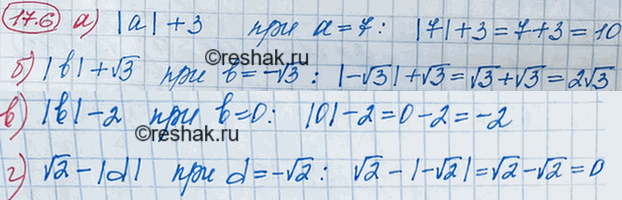 17.6 а) |a| + 3 при a = 7: |7| + 3 = 7 + 3 = 10
©reshak.ru
б) |b| + √3 при b = -√3: |-√3| + √3 = √3 + √3 = 2√3
в) |b| - 2 при b = 0: |0| - 2 = 0 - 2 = -2
©reshak.ru
г) √2 - |d| при d = -√2: √2 - |-√2| = √2 - √2 = 0